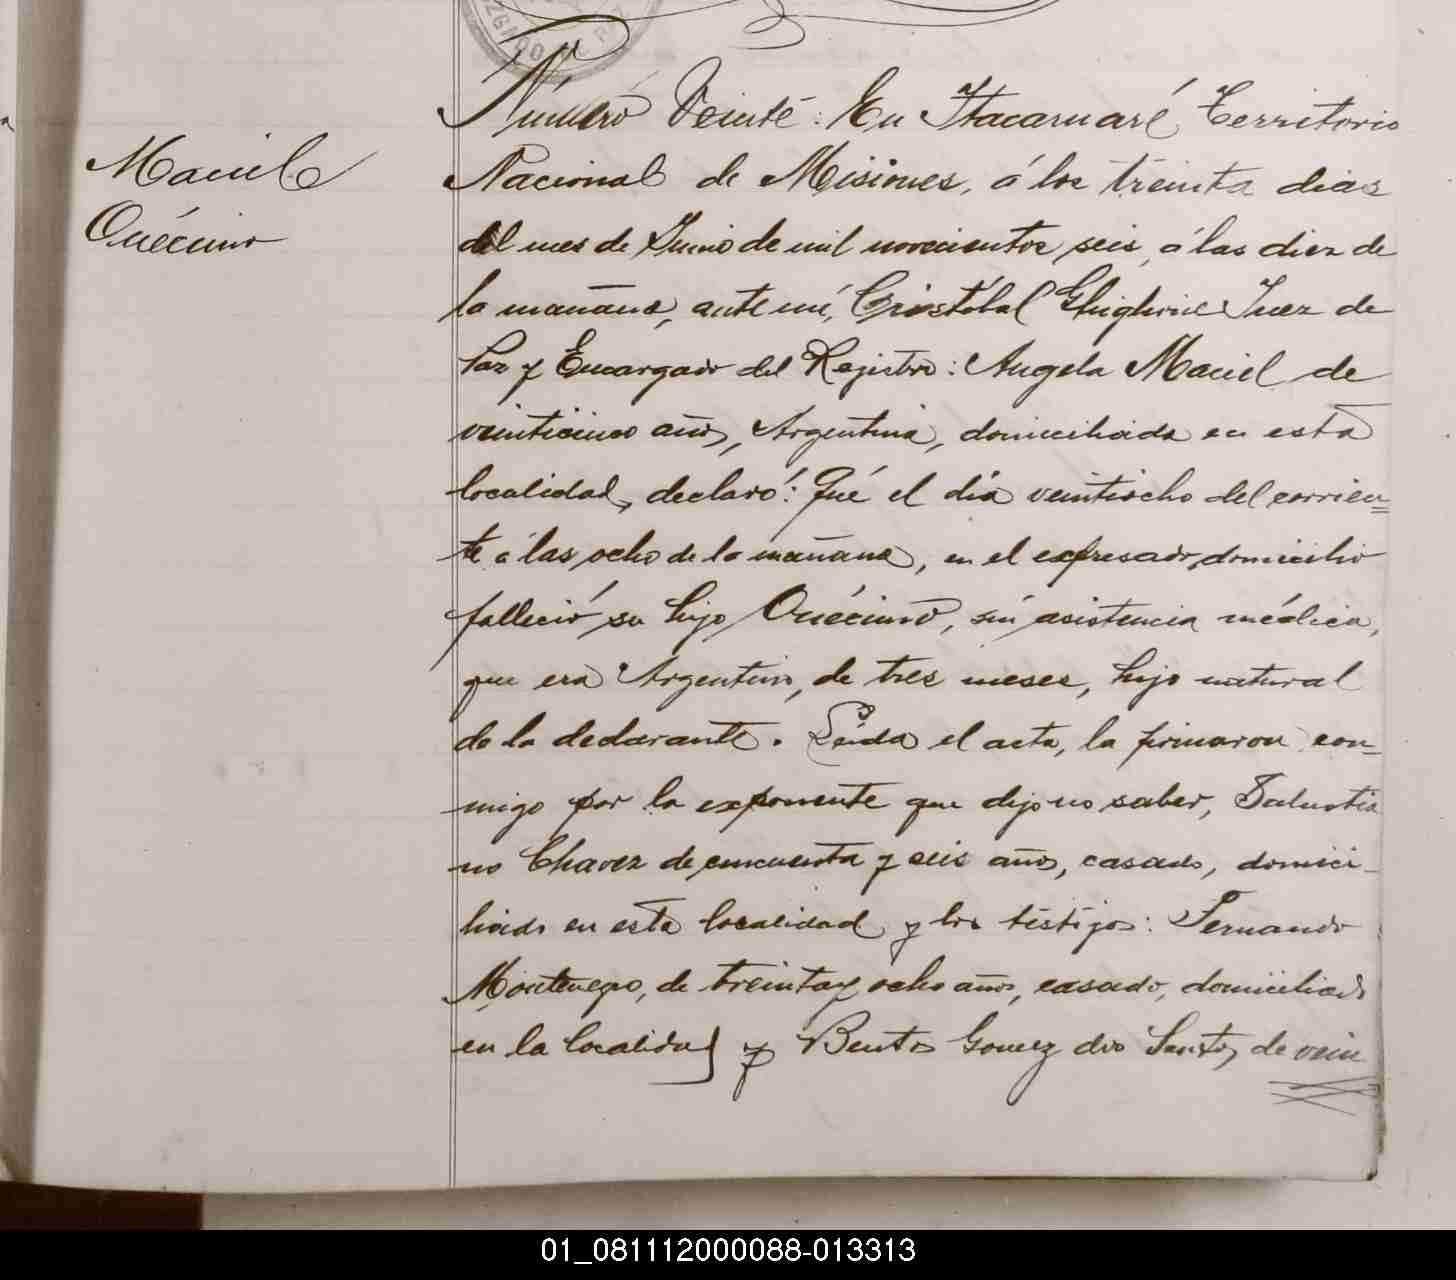 Número Veinte: En Itacaruaré, Territorio
Maciel
Nacional de Misiones, á los treinta dias
Onécimo
del mes de Junio de mil novecientos seis, á las diez de
la mañana, ante mí, Cristobal Juez de
Paz y Encargado del Registro: Angela Maciel de
veinticinco años, Argentina, domiciliada en esta
localidad, declaró: Qué el día veintiocho del corrien=
te á las ocho de la mañana, en el expresado domicilio
falleció su hijo Onécimo, sin asistencia médica,
que era Argentino, de tres meses, hijo natural
de la declarante. Leida el acta, la firmaron con=
migo por la exponente que dijo no saber, Salustia
no Chavez de cincuenta y seis años, casado, domici-
liado en esta localidad y los testigos: Fernando
Montenegro, de treinta y ocho años, casado, domiciliado
en la localidad y Bento Gomez dos Santos, de vein
01_081112000088-013313